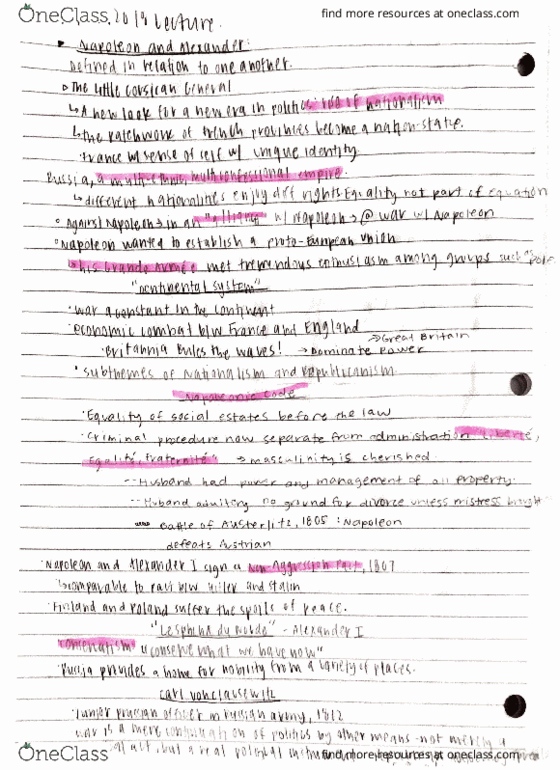 OneClass
find more resources at oneclass.com
2019 Lecture.
Napoleon and Alexander:
Defined in relation to one another.
The little corsican General
A new look for a new era in politics: idea of nationalism
the patchwork of french provinces become a nation-state.
France w/ sense of self w/ unique identity
Russia, a multi-ethnic, multiconfessional empire.
different nationalities enjoy diff rights Equality not part of equation
Against Napoleon → in an "alliance" w/ Napoleon → @ war w/ Napoleon
Napoleon wanted to establish a proto-European union
His Grande Armée met tremendous enthusiasm among groups such
"continental system"
war a constant in the continent
economic combat b/w France and England
→ Great Britain
Britannia Rules the waves! → Dominate Power
subthemes of Nationalism and Republicanism
Napoleonic Code
Equality of social estates before the law
Criminal procedure now separate from administration Liberté,
Egalité, fraternité → masculinity is cherished.
Husband had power any management of all property.
Huband adultry no ground for divorce unless mistress brought
Battle of Austerlitz, 1805 : Napoleon
defeats Austrian
Napoleon and Alexander I sign a Non Aggression Pact, 1807
comparable to pact b/w Hitler and Stalin
Finland and Poland suffer the spoils of peace.
- Alexander I
conserve what we have now"
Russia provides a home for nobility from a variety of places.
Carl von Clausewitz
Junior prussian officer in russian army, 1812
war is a mere continuation of politics by other means - not merely a
act, but a real political
OneClass
find more resources at oneclass.com